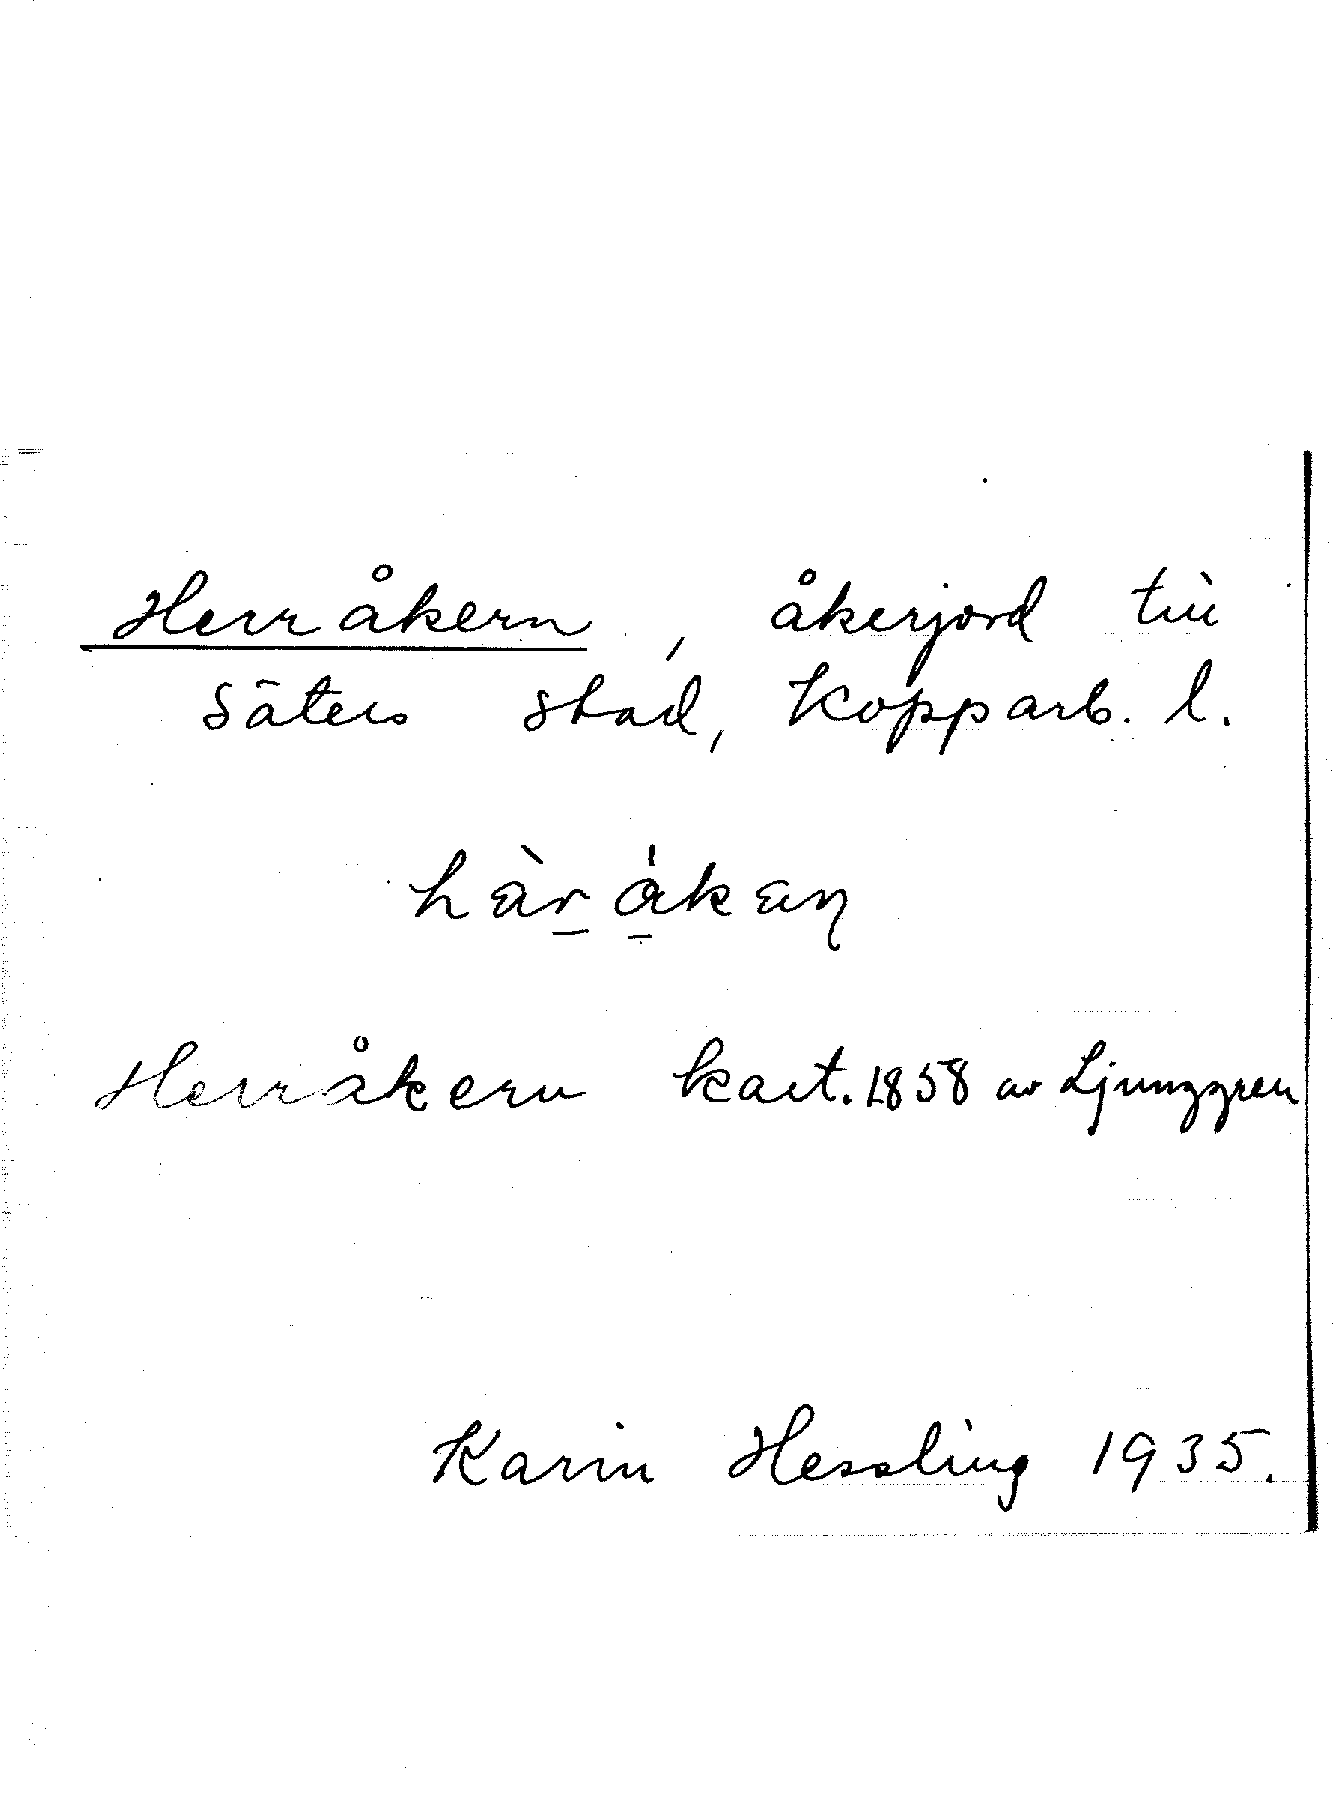 Herråkern, åkerjord till
Säters stad, Kopparb. l.
hæ̀r åkæɳ
Herråkern kart. 1858 av Ljunggren
Karin Hessling 1935.